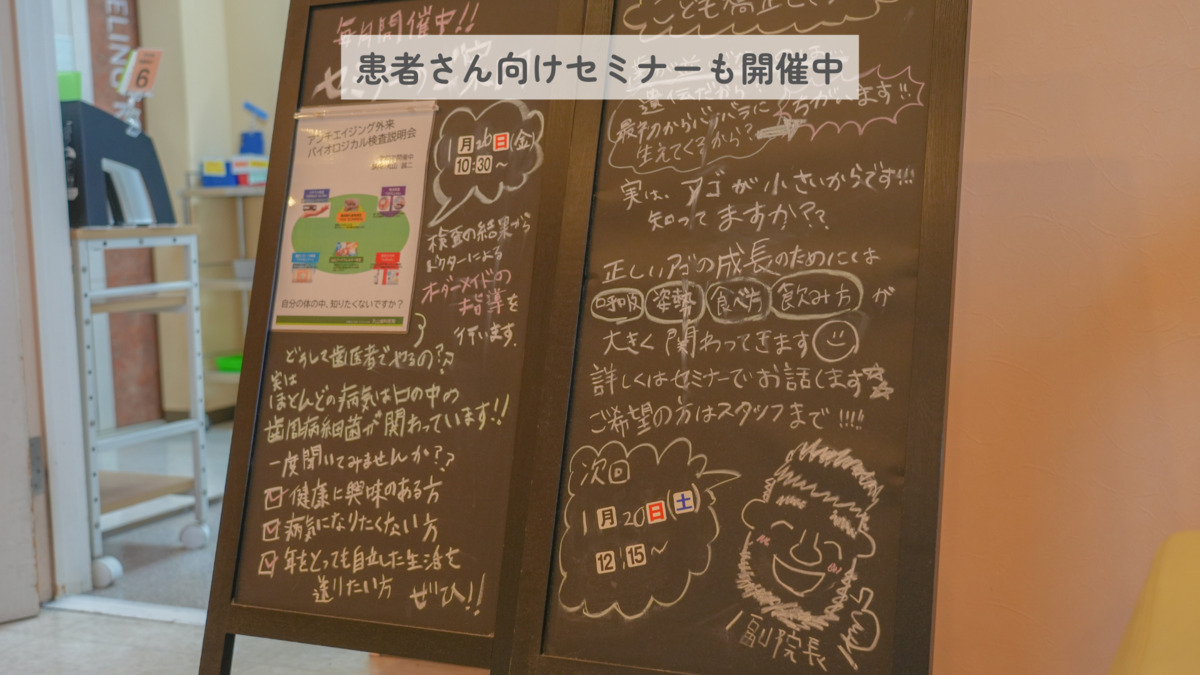 患者さん向けセミナーも開催中
毎月開催中!!
アンチエイジング外来
バイオロジカル検査説明会
自分の体の中、知りたくないですか?
1月26日(金)
10:30〜
検査の結果から
ドクターによる
オーダーメイドの
指導を
行います。
どうして歯医者でやるの??
実は
ほとんどの病気は口の中の
歯周病細菌が関わっています!!
一度聞いてみませんか??
健康に興味のある方
病気になりたくない方
年をとっても自立した生活を
送りたい方 ぜひ!!
こども矯正
遺伝だから?
ちがいます!!
最初からバラバラに
生えてくるから?
実は、アゴが小さいからです!!!
知ってますか??
正しいアゴの成長のためには
呼吸 姿勢 食べ方 飲み方 が
大きく関わってきます
詳しくはセミナーでお話します
ご希望の方はスタッフまで!!!!
次回
1月20日(土)
12:15〜
副院長
6